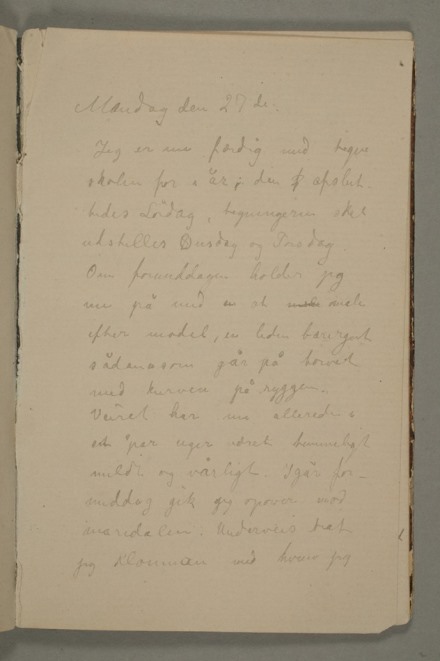 Mandag den 27 de.
Jeg er nu færdig med tegne
skolen for i år; den afslut-
tedes Lördag, tegningerne skal
udstilles Onsdag og Torsdag.
Om formiddagen holder jeg
nu på med at
efter model, en liden
sådan som går på torvet
med kurven på ryggen.
Veiret har nu allerede i
et par uger været
mildt og vårligt. Igår for-
middag gik jeg opover mod
maridalen. Underveis traf
jeg Klouman med hvem jeg